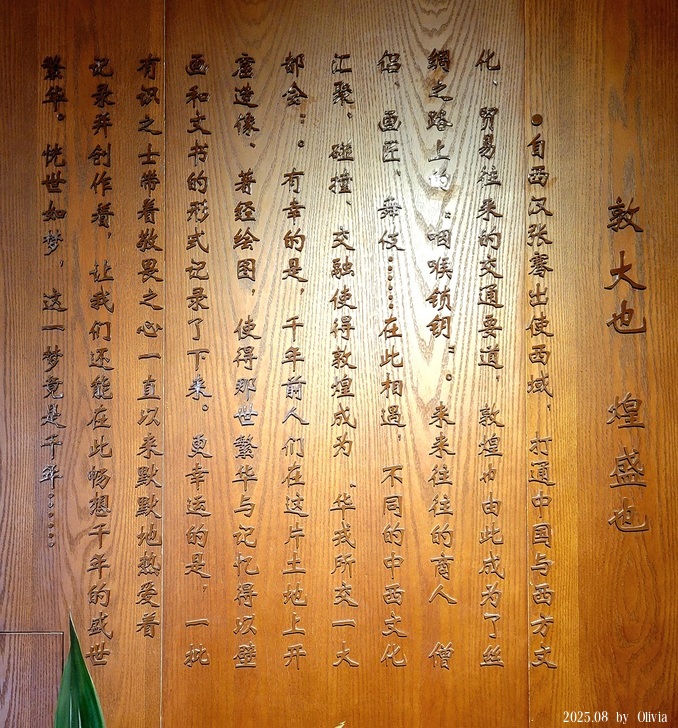 敦大也 煌盛也
●自西汉张骞出使西域,打通中国与西方文
化、贸易往来的交通要道,敦煌也由此成为了丝
绸之路上的“咽喉锁钥”。来来往往的商人、僧
侣、画匠、舞伎……在此相遇,不同的中西文化
汇聚、碰撞、交融使得敦煌成为“华戎所交一大
都会”。有幸的是,千年前人们在这片土地上开
窟造像、著经绘图,使得那世繁华与记忆得以壁
画和文书的形式记录了下来。更幸运的是,一批
有识之士带着敬畏之心一直以来默默地热爱着
记录并创作着,让我们还能在此畅想千年的盛世
繁华。恍世如梦,这一梦竟是千年……
2025.08 by Olivia